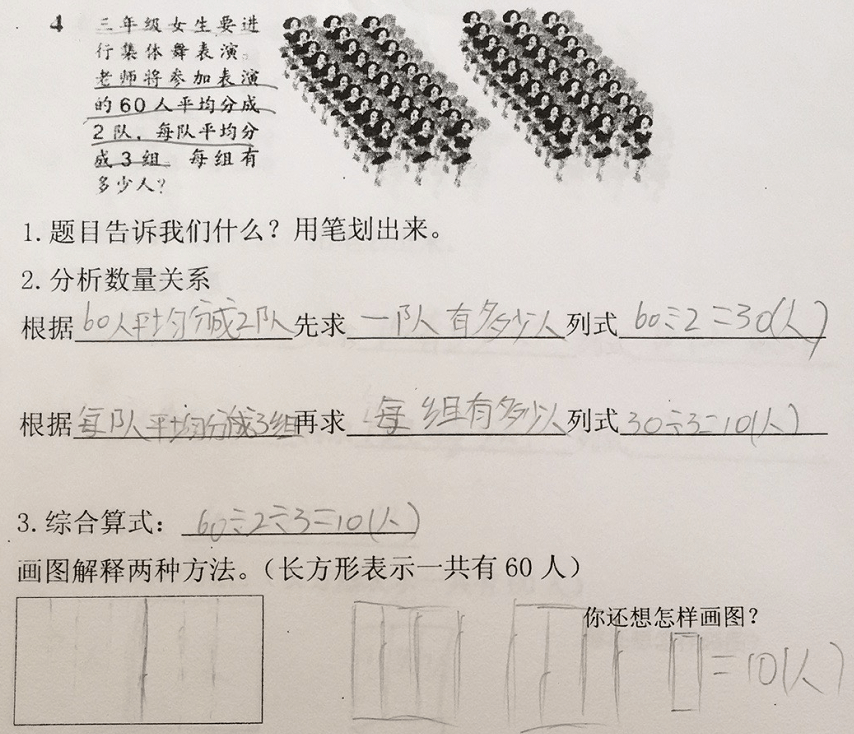 4 三年级女生要进
行集体舞表演。
老师将参加表演
的60人平均分成
2队，每队平均分
成3组。每组有
多少人？
1.题目告诉我们什么？用笔划出来。
2.分析数量关系
根据60人平均分成2队先求一队有多少人列式60÷2=30(人)
根据每队平均分成3组再求每组有多少人列式30÷3=10(人)
3.综合算式：60÷2÷3=10(人)
画图解释两种方法。（长方形表示一共有60人）
你还想怎样画图？
=10(人)